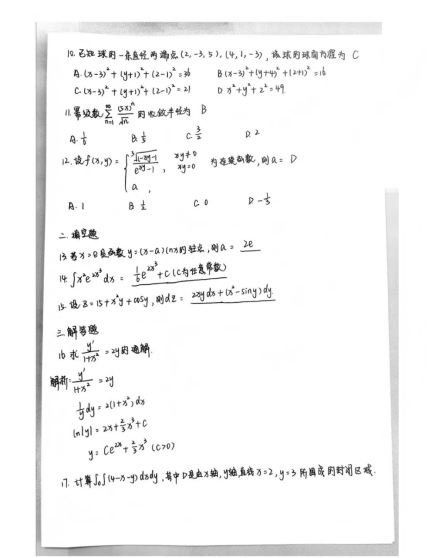 10.已知球的一条直径两端点(2,-3,5),(4,1,-3),该球的球面方程为 C
A.(x-3)²+(y+1)²+(z-1)²=36 B(x-3)²+(y+4)²+(z+1)²=16
C.(x-3)²+(y+1)²+(z-1)²=21 D x²+y²+z²=49.
11.幂级数∑_{n=1}^{∞} (5x)^n/√n 的收敛半径为 B
A.1/6 B.1/5 C.3/2 D.2
12.设f(x,y)={ (³√(1-xy)-1)/(e^{xy}-1), xy≠0 为连续函数,则a= D
a, xy=0
A.1 B ½ C 0 D.-1/3
二.填空题
13.若x=e是函数y=(x-a)lnx的驻点,则a= 2e
14.∫x²e^{2x³}dx= (1/6)e^{2x³}+C(C为任意常数)
15.设z=15+x²y+cosy,则dz= 2xydx+(x²-siny)dy
三.解答题
16 求 y'/(1+x²)=2y的通解.
解析: y'/(1+x²)=2y
(1/y)dy=2(1+x²)dx
ln|y|=2x+(2/3)x³+C
y=Ce^{2x+(2/3)x³} (C>0)
17.计算∫_D∫(4-x-y)dxdy,其中D是由x轴,y轴,直线x=2,y=3所围成的封闭区域.